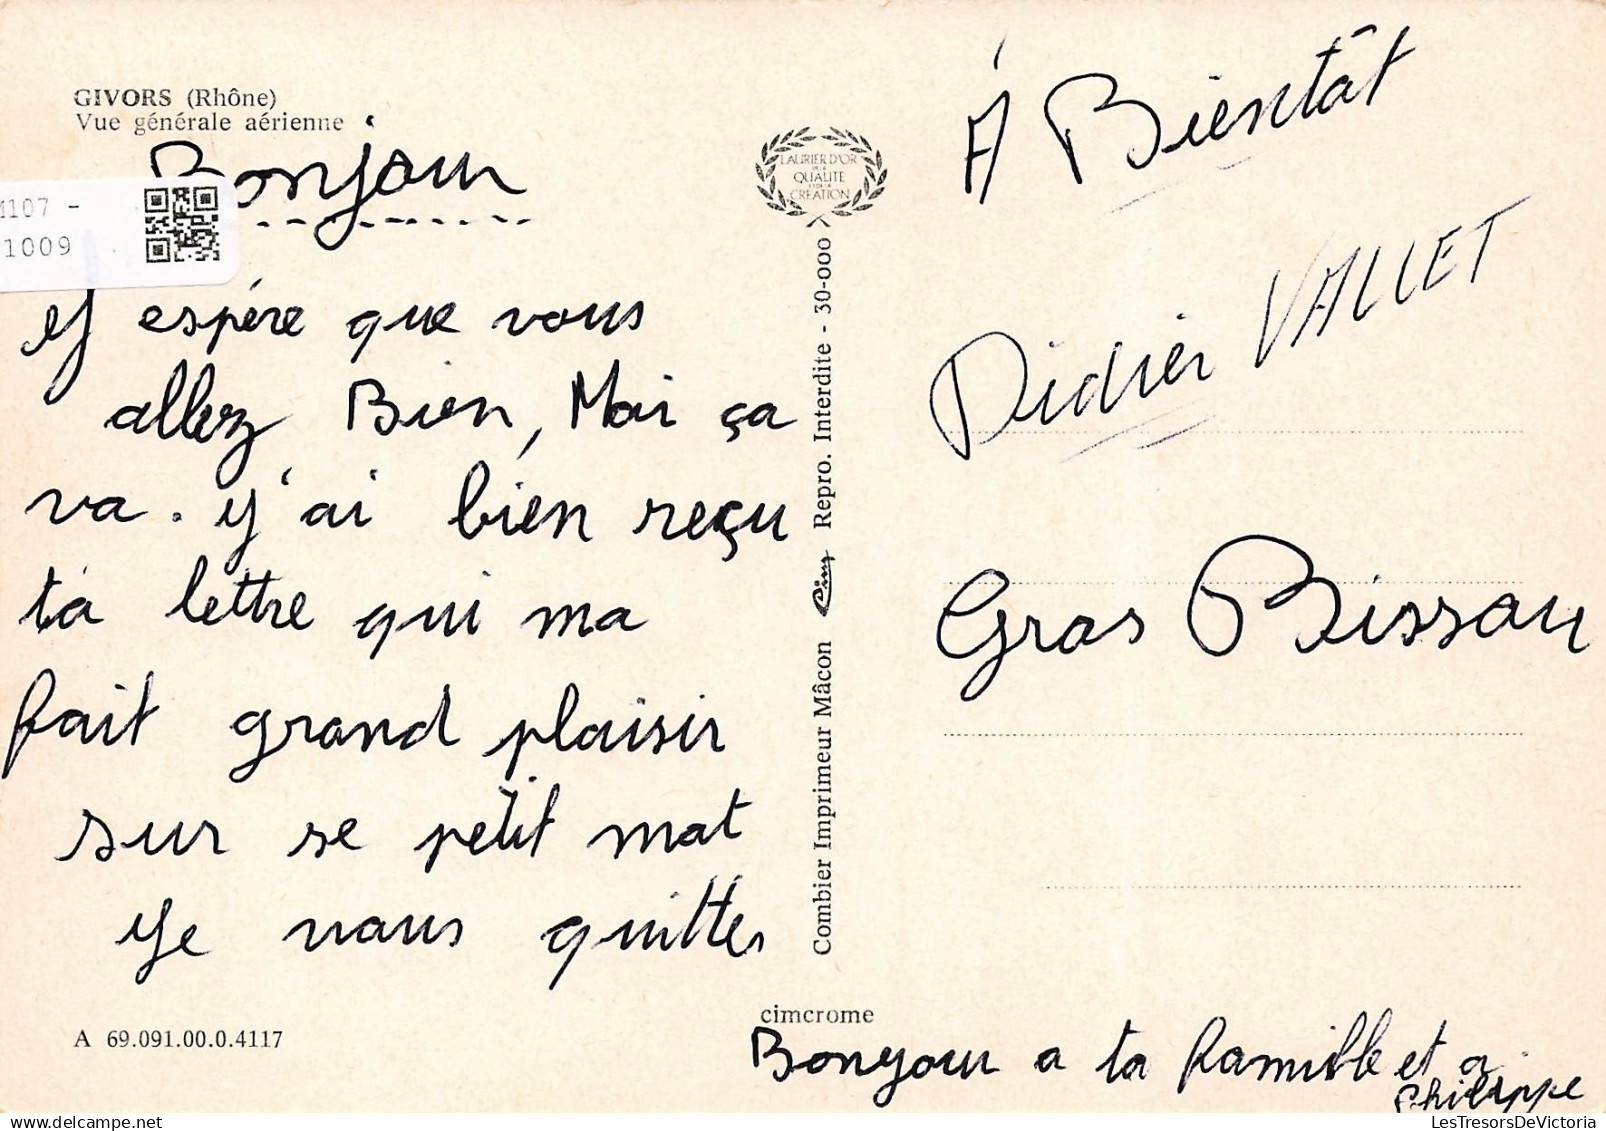 GIVORS (Rhône)
Vue générale aérienne
Bonjour
M107 -
1009
J espére que vous
allez Bien, Moi ça
va. j'ai bien reçu
ta lettre qui ma
fait grand plaisir
sur se petit mot
Je vous quittes
A 69.091.00.0.4117
LAURIER D'OR
DE LA
QUALITE
ET DE LA
CREATION
Combier Imprimeur Mâcon Cim Repro. Interdite - 30-000
À Bientôt
Didier VALLET
Gros Bissou
cimcrome
Bonjour a ta famille et a
Philippe
LesTresorsDeVictoria